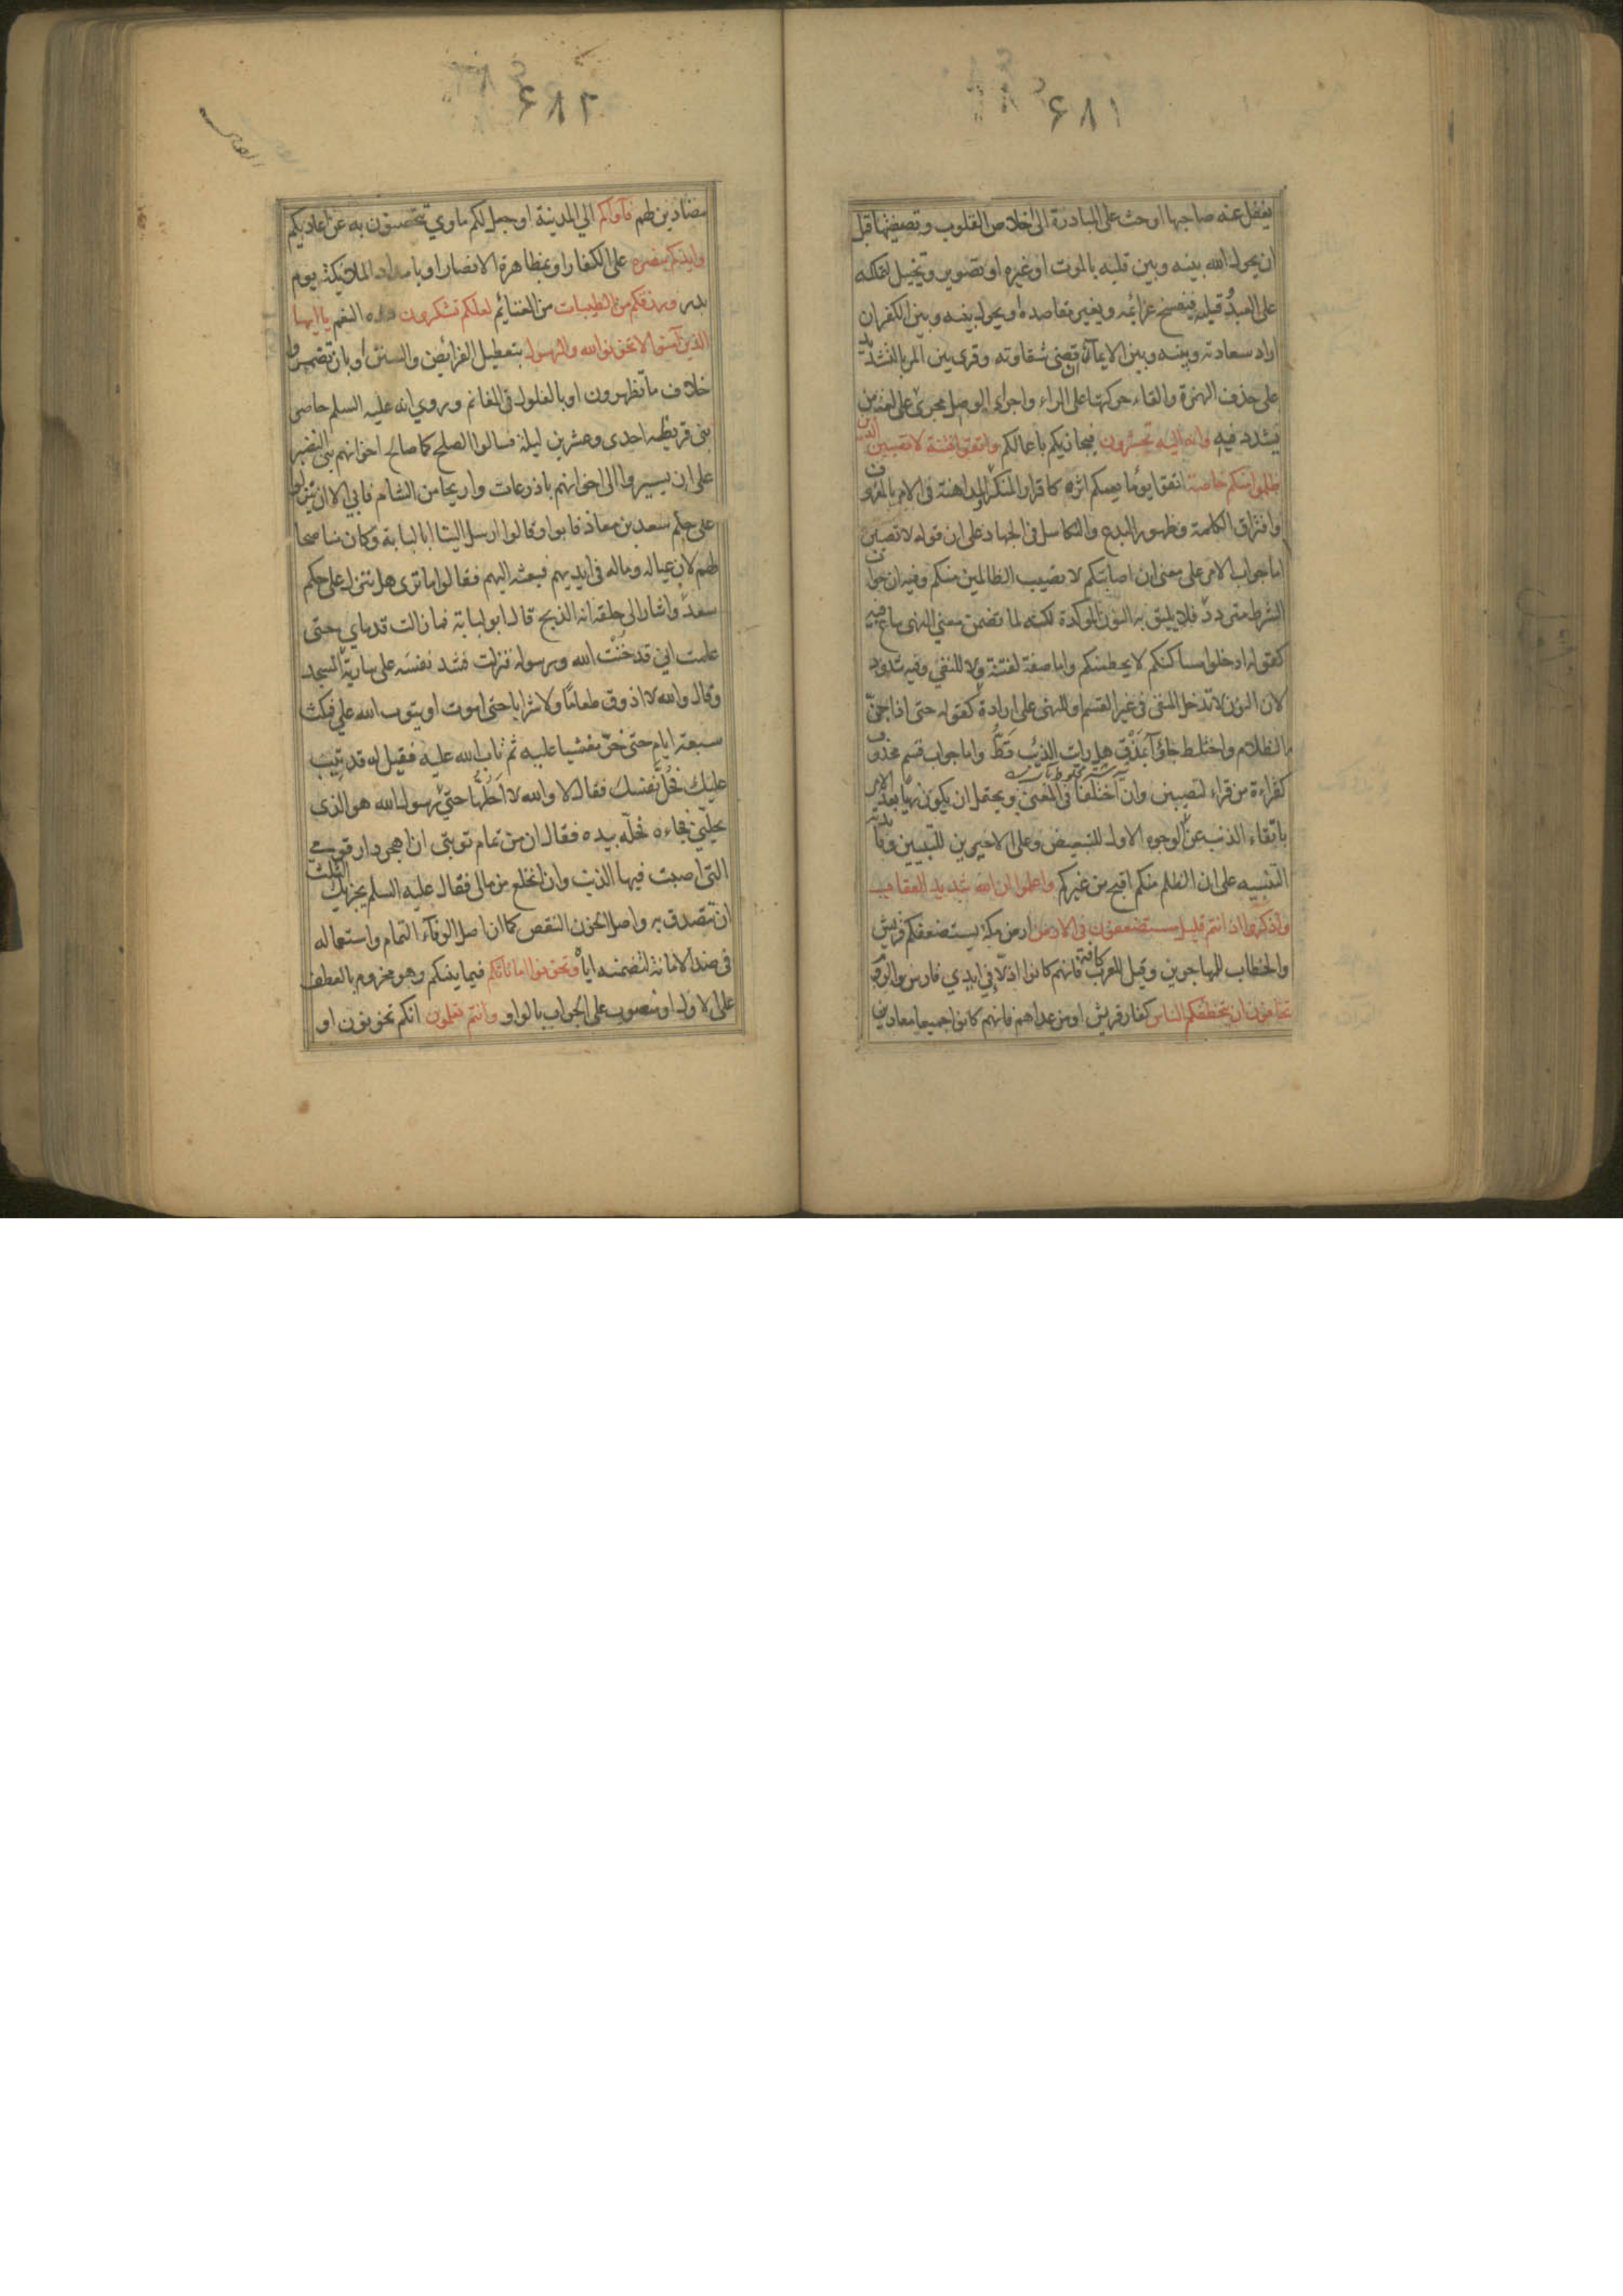 ۶۸۱
يغفل عنه صاحبها او حث على المبادرة الى اخلاص القلوب وتصفيتها قبل
ان يحول الله بينه وبين قلبه بالموت او غيره او تصوير وتخييل لتملكه
على العبد قلبه فيفسخ عزائمه ويغير مقاصده ويحول بينه وبين الكفر ان
اراد سعادته وبينه وبين الايمان ان قضى شقاوته وقرى بين المر بالتشديد
على حذف الهمزة والقاء حركتها على الراء واجراء الوصل مجرى على لغة من
يشدد فيه وانه اليه تحشرون فيجازيكم باعمالكم واتقوا فتنة لا تصيبن الذين
ظلموا منكم خاصة اتقوا يعمكم اثره كاقرار المنكر والمداهنة فى الامر بالمعروف
وافتراق الكلمة وظهور البدع والتكاسل فى الجهاد على ان قوله لا تصيبن
اما جواب الامر على معنى ان اصابتكم لا تصيب الظالمين منكم وفيه ان جواب
الشرط متردد فلا يليق به النون الموكدة لكنه لما تضمن معنى النهى ساغ فيه
كقوله ادخلوا مساكنكم لا يحطمنكم واما صفة لفتنة ولا للنفي وفيه شذوذ
لان النون لا تدخل المنفى فى غير القسم او للنهى على ارادة كقوله حتى اذا جن
الظلام واختلط جاؤا بمذق هل رايت الذئب قط واما جواب قسم محذوف
كقراءة من قراء لتصيبن وان اختلفا فى المعنى ويحتمل ان يكون نهيا بعد الامر
باتقاء الذنب عن الوجوه الاول للتبعيض وعلى الاخيرين للتبيين وفائدته
التنبيه على ان الظلم منكم اقبح من غيركم واعلموا ان الله شديد العقاب
واذكروا اذ انتم قليل مستضعفون فى الارض ارض مكة يستضعفكم قريش
والخطاب للمهاجرين وقيل للعرب كافة فانهم كانوا اذلا في ايدي فارس والروم
تخافون ان يتخطفكم الناس كفار قريش او من عداهم فانهم كانوا جميعا معادين
۶۸۲
مضادين لهم فآواكم الي المدينة او جعل لكم ماوي تتحصنون به عن اعاديكم
وايدكم بنصره على الكفار او بمظاهرة الانصار او بامداد الملائيكة يوم
بدر ورزقكم من الطيبات من الغنائم لعلكم تشكرون هذه النعم يا ايها
الذين آمنوا لا تخونوا الله والرسول بتعطيل الفرائض والسنن او بان تضمروا
خلاف ما تظهرون او بالغلول فى المغانم وروي انه عليه السلم حاصر
بنى قريظه احدى وعشرين ليلة فسالوا الصلح كما صالح اخوانهم بنى النضير
على ان يسيروا الى اخوانهم باذرعات واريحا من الشام فابي الا ان ينزلوا
على حكم سعد بن معاذ فابوا وقالوا ارسل الينا ابا لبابة وكان مناصحا
لهم لان عياله وماله فى ايديهم فبعثه اليهم فقالوا ما ترى هل ننزل على حكم
سعد واشار الى حلقه انه الذبح قال ابو لبابة فما زالت قدماي حتى
علمت اني قد خنت الله ورسوله فنزلت فشد نفسه على سارية المسجد
وقال والله لا اذوق طعاما ولا شرابا حتى اموت او يتوب الله علي فمكث
سبعة ايام حتى خر مغشيا عليه ثم تاب الله عليه فقيل له قد تيب
عليك فحل نفسك فقال لا والله لا احلها حتى رسول الله هو الذى
يحلني فجاءه فحله بيده فقال ان من تمام توبتى ان اهجر دار قومي
التى اصبت فيها الذنب وان انخلع من مالى فقال عليه السلم يجزيك الثلث
ان تتصدق به واصل الخون النقص كما ان اصل الوفاء التمام واستعماله
فى ضد الامانة لتضمنه اياه وتخونوا اماناتكم فيما بينكم وهو مجزوم بالعطف
على الاول او منصوب على الجواب بالواو وانتم تعلمون انكم تخونون او